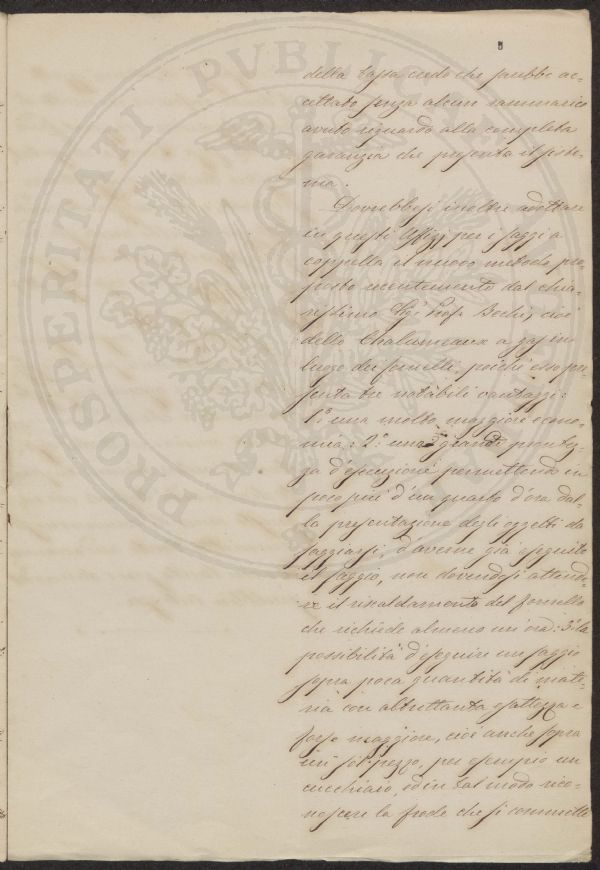 PROSPERITATI PUBLICAE
della tassa credo che sarebbe ac=
cettato senza alcun rammarico
avuto riguardo alla completa
garanzia che presenta il siste=
ma.
Dovrebbesi inoltre adottare
in questi Uffizj per i saggi a
coppella il nuovo metodo pro=
posto recentemente dal chia=
rissimo Sigr Prof. cioè
dello Chalumeaux a gaz in
luogo dei fornelli, poichè esso pre=
senta tre notabili vantaggi:
1º una molto maggiore econo=
mia: 2º una grande prontez=
za d'esecuzione permettendo in
poco più d'un quarto d'ora dal=
la presentazione degli oggetti da
saggiarsi, d'averne già eseguito
il saggio, non dovendosi atten=
re il riscaldamento del fornello
che richiede almeno un'ora: 3º la
possibilità d'eseguire un saggio
sopra poca quantità di mate=
ria con altrettanta esattezza e
forse maggiore, cioè anche sopra
un sol pezzo, per esempio un
cucchiaio, ed in tal modo rico=
noscere la frode che si commette